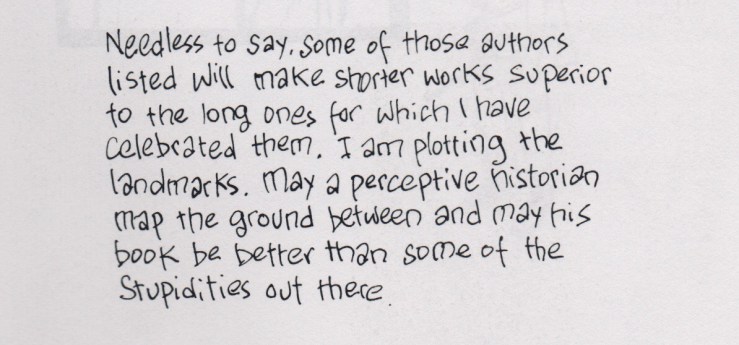 Needless to say, some of those authors
listed will make shorter works superior
to the long ones for which I have
celebrated them. I am plotting the
landmarks. May a perceptive historian
map the ground between and may his
book be better than some of the
Stupidities out there.